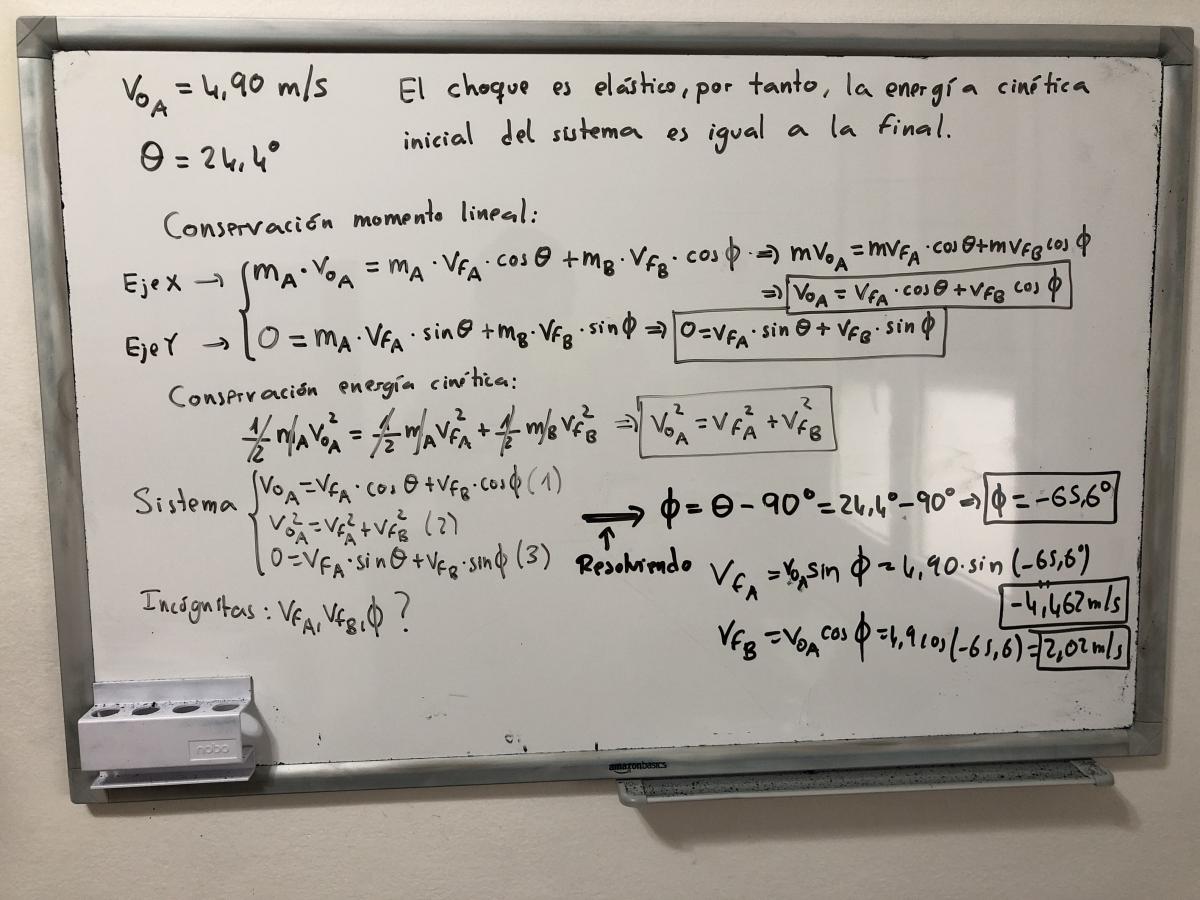 V₀A = 4,90 m/s
El choque es elástico, por tanto, la energía cinética
θ = 24,4°
inicial del sistema es igual a la final.
Conservación momento lineal:
Eje X → { mA · V₀A = mA · VfA · cos θ + mB · VfB · cos ϕ ⇒ mV₀A = mVfA · cos θ + mVfB cos ϕ
⇒ V₀A = VfA · cos θ + VfB cos ϕ
Eje Y → { 0 = mA · VfA · sin θ + mB · VfB · sin ϕ ⇒ 0 = VfA · sin θ + VfB · sin ϕ
Conservación energía cinética:
1/2 mA V₀A² = 1/2 mA VfA² + 1/2 mB VfB² ⇒ V₀A² = VfA² + VfB²
Sistema { V₀A = VfA · cos θ + VfB · cos ϕ (1)
V₀A² = VfA² + VfB² (2)
0 = VfA · sin θ + VfB · sin ϕ (3)
Incógnitas: VfA, VfB, ϕ ?
→ ϕ = θ - 90° = 24,4° - 90° ⇒ ϕ = -65,6°
↑
Resolviendo
VfA = V₀A sin ϕ = 4,90 · sin (-65,6°)
-4,462 m/s
VfB = V₀A cos ϕ = 4,9 cos (-65,6) = 2,02 m/s
nobo
amazonbasics